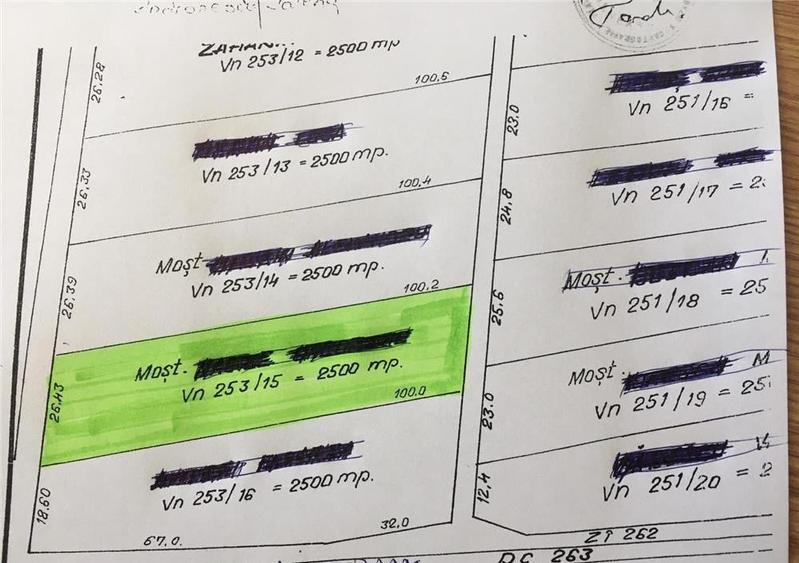 ZAHAN...
Vn 253/12 = 2500 mp
100.6
26.28
Vn 253/13 = 2500 mp.
100.4
26.33
Moșt.
Vn 253/14 = 2500 mp.
100.2
26.39
Moșt.
Vn 253/15 = 2500 mp.
100.0
26.43
Vn 253/16 = 2500 mp.
18.60
67.0.
32.0
Vn 251/16 =
23.0
Vn 251/17 = 2
24.8
Moșt.
Vn 251/18 = 25
25.6
Moșt.
M
Vn 251/19 = 25
23.0
Vn 251/20 = 2
12.4
ZT 262
DC 263